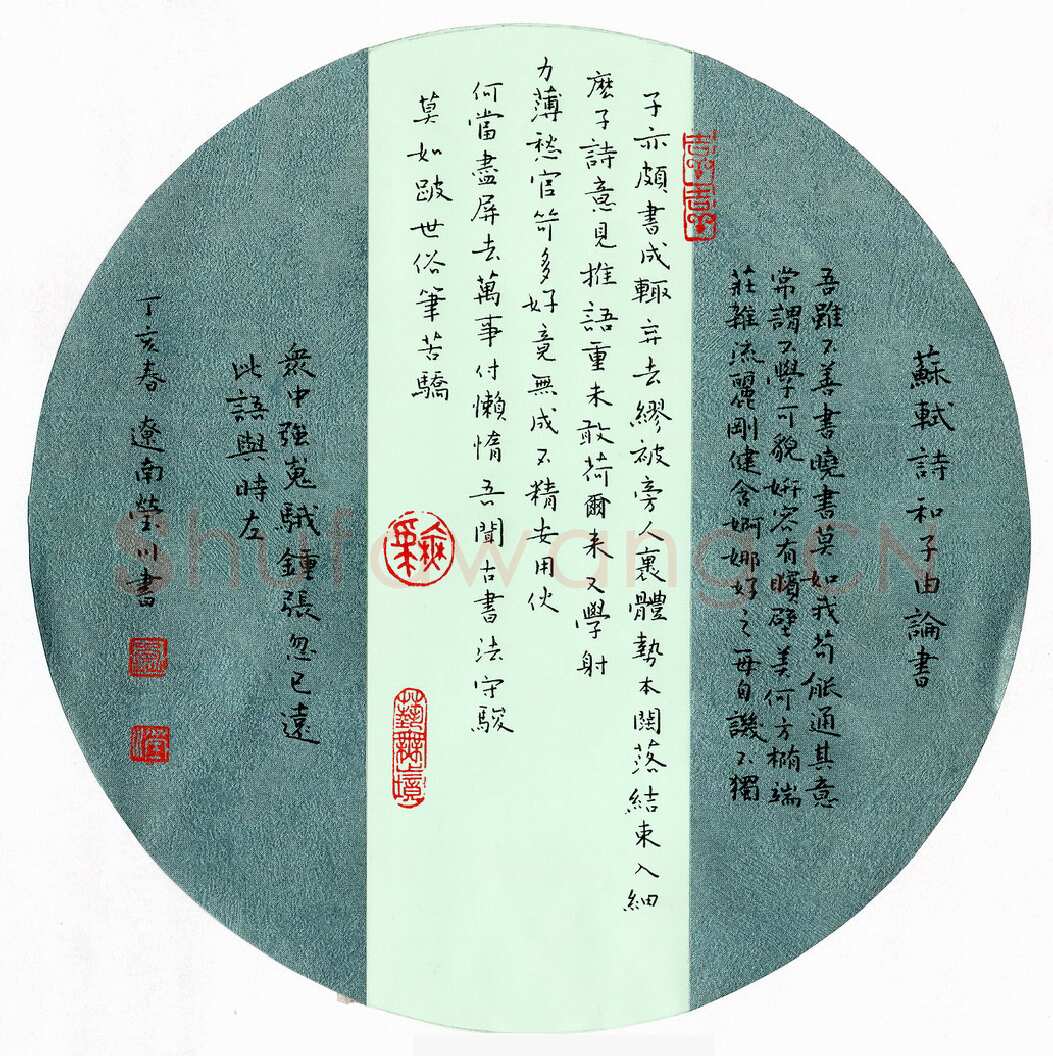 蘇軾詩和子由論書
吾雖不善書曉書莫如我苟能通其意
常謂不學可貌妍容有矉璧美何方橢端
莊雜流麗剛健含婀娜好之每自譏不獨
子亦頗書成輒弃去繆被旁人裹體勢本闊落結束入細
麽子詩意見推語重未敢荷爾来又學射
力薄愁官笴多好竟無成不精安用伙
何當盡屏去萬事付懶惰吾聞古書法守駿
莫如跛世俗筆苦驕
衆中強嵬騀鍾張忽已遠
此語與時左
丁亥春 遼南瑩川書
藝無止境
Shufawang.CN